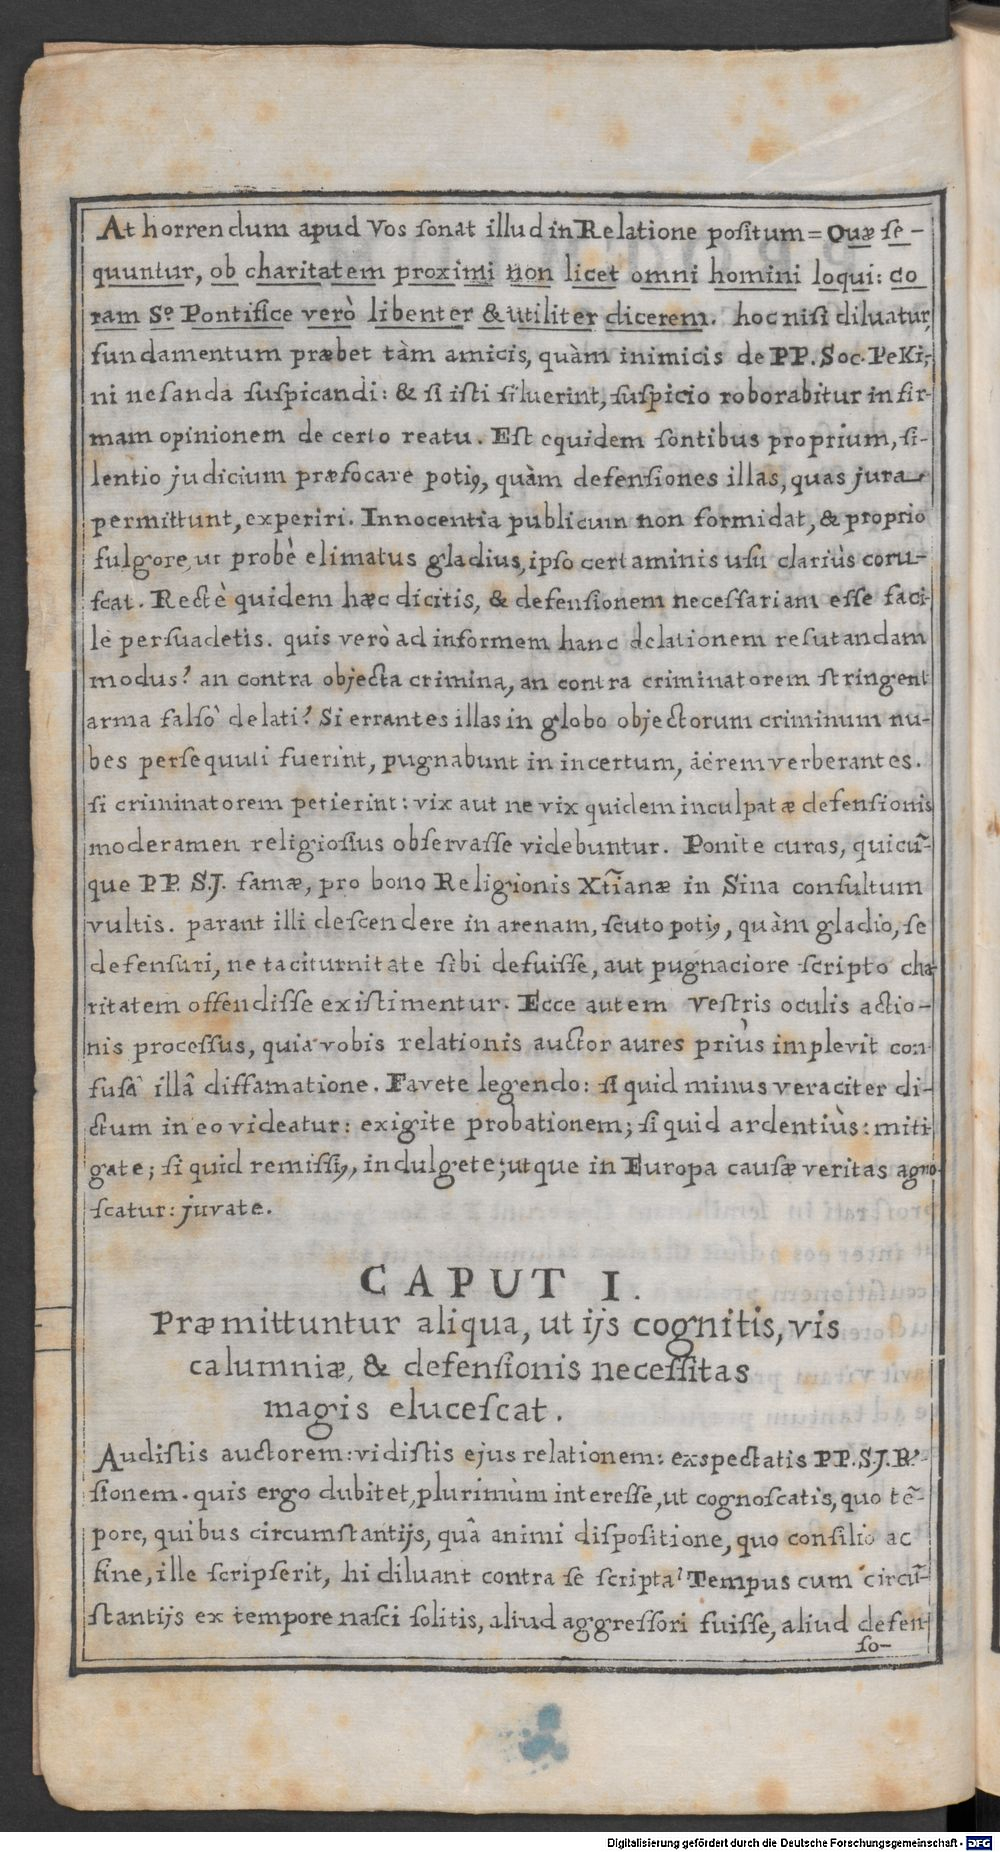 At horrendum apud Vos sonat illud in Relatione positum = Quæ se-
quuntur, ob charitatem proximi non licet omni homini loqui: co
ram S.º Pontifice verò libenter & utiliter dicerem. hoc nisi diluatur,
fundamentum præbet tàm amicis, quàm inimicis de PP. Soc. Peki-
ni nefanda suspicandi: & si isti siluerint, suspicio roborabitur in fir-
mam opinionem de certo reatu. Est equidem sontibus proprium, si-
lentio judicium præfocare potiꝰ, quàm defensiones illas, quas jura
permittunt, experiri. Innocentia publicum non formidat, & proprio
fulgore, ut probè elimatus gladius, ipso certaminis usu clariùs coru-
scat. Rectè quidem hæc dicitis, & defensionem necessariam esse faci-
lè persuadetis. quis verò ad informem hanc delationem refutandam
modus? an contra objecta crimina, an contra criminatorem stringent
arma falsò delati? Si errantes illas in globo objectorum criminum nu-
bes persequuti fuerint, pugnabunt in incertum, äërem verberantes.
si criminatorem petierint: vix aut ne vix quidem inculpatæ defensionis
moderamen religiosius observasse videbuntur. Ponite curas, quicũ-
que PP. S.J. famæ, pro bono Religionis Xtĩanæ in Sina consultum
vultis. parant illi descendere in arenam, scuto potiꝰ, quàm gladio, se
defensuri, ne taciturnitate sibi defuisse, aut pugnaciore scripto cha-
ritatem offendisse existimentur. Ecce autem vestris oculis actio-
nis processus, quia vobis relationis auctor aures priùs implevit con-
fusâ illâ diffamatione. Favete legendo: si quid minus veraciter di-
ctum in eo videatur: exigite probationem; si quid ardentiùs: miti
gate; si quid remissiꝰ, indulgete; utque in Europa causæ veritas agno-
scatur: juvate.
CAPUT I.
Præmittuntur aliqua, ut ijs cognitis, vis
calumniæ, & defensionis necessitas
magis elucescat.
Audistis auctorem: vidistis ejus relationem: exspectatis PP. S.J. R.ˢ-
sionem. quis ergo dubitet, plurimùm interesse, ut cognoscatis, quo tẽ-
pore, quibus circumstantijs, quâ animi dispositione, quo consilio ac
fine, ille scripserit, hi diluant contra se scripta? Tempus cum circũ-
stantijs ex tempore nasci solitis, aliud aggressori fuisse, aliud defen-
so-
Digitalisierung gefördert durch die Deutsche Forschungsgemeinschaft - DFG